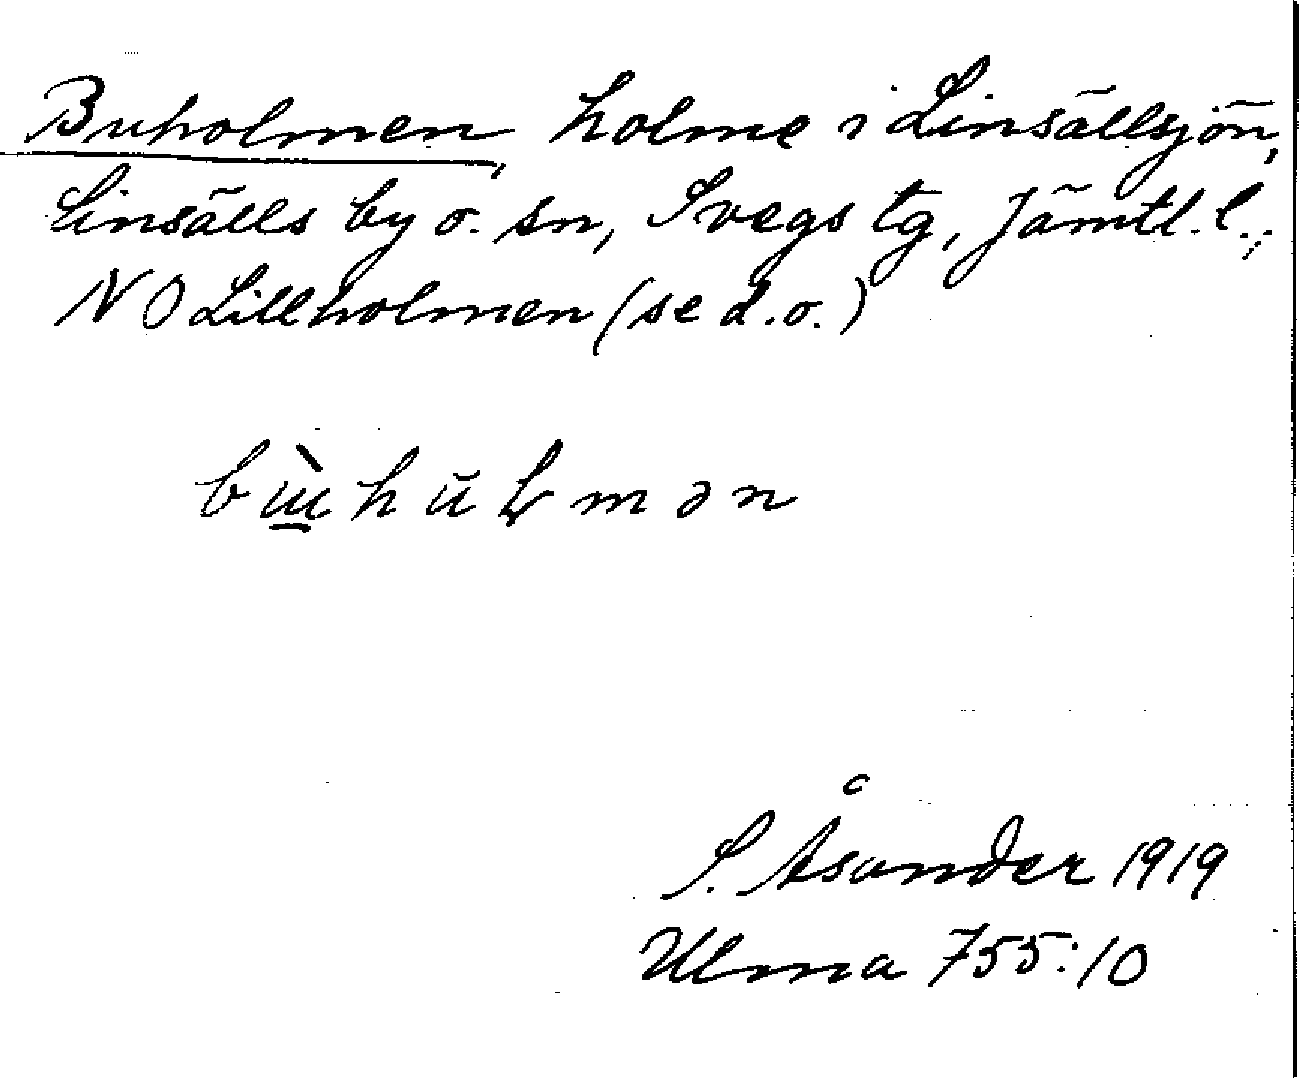 Buholmen, holme i Linsällsjön,
Linsälls by o. sn, Svegs tg, Jämtl. l.;
NO Lillholmen (se d.o.)
bɯ̀hŭɫmən
S. Åsander 1919
Ulma 755:10